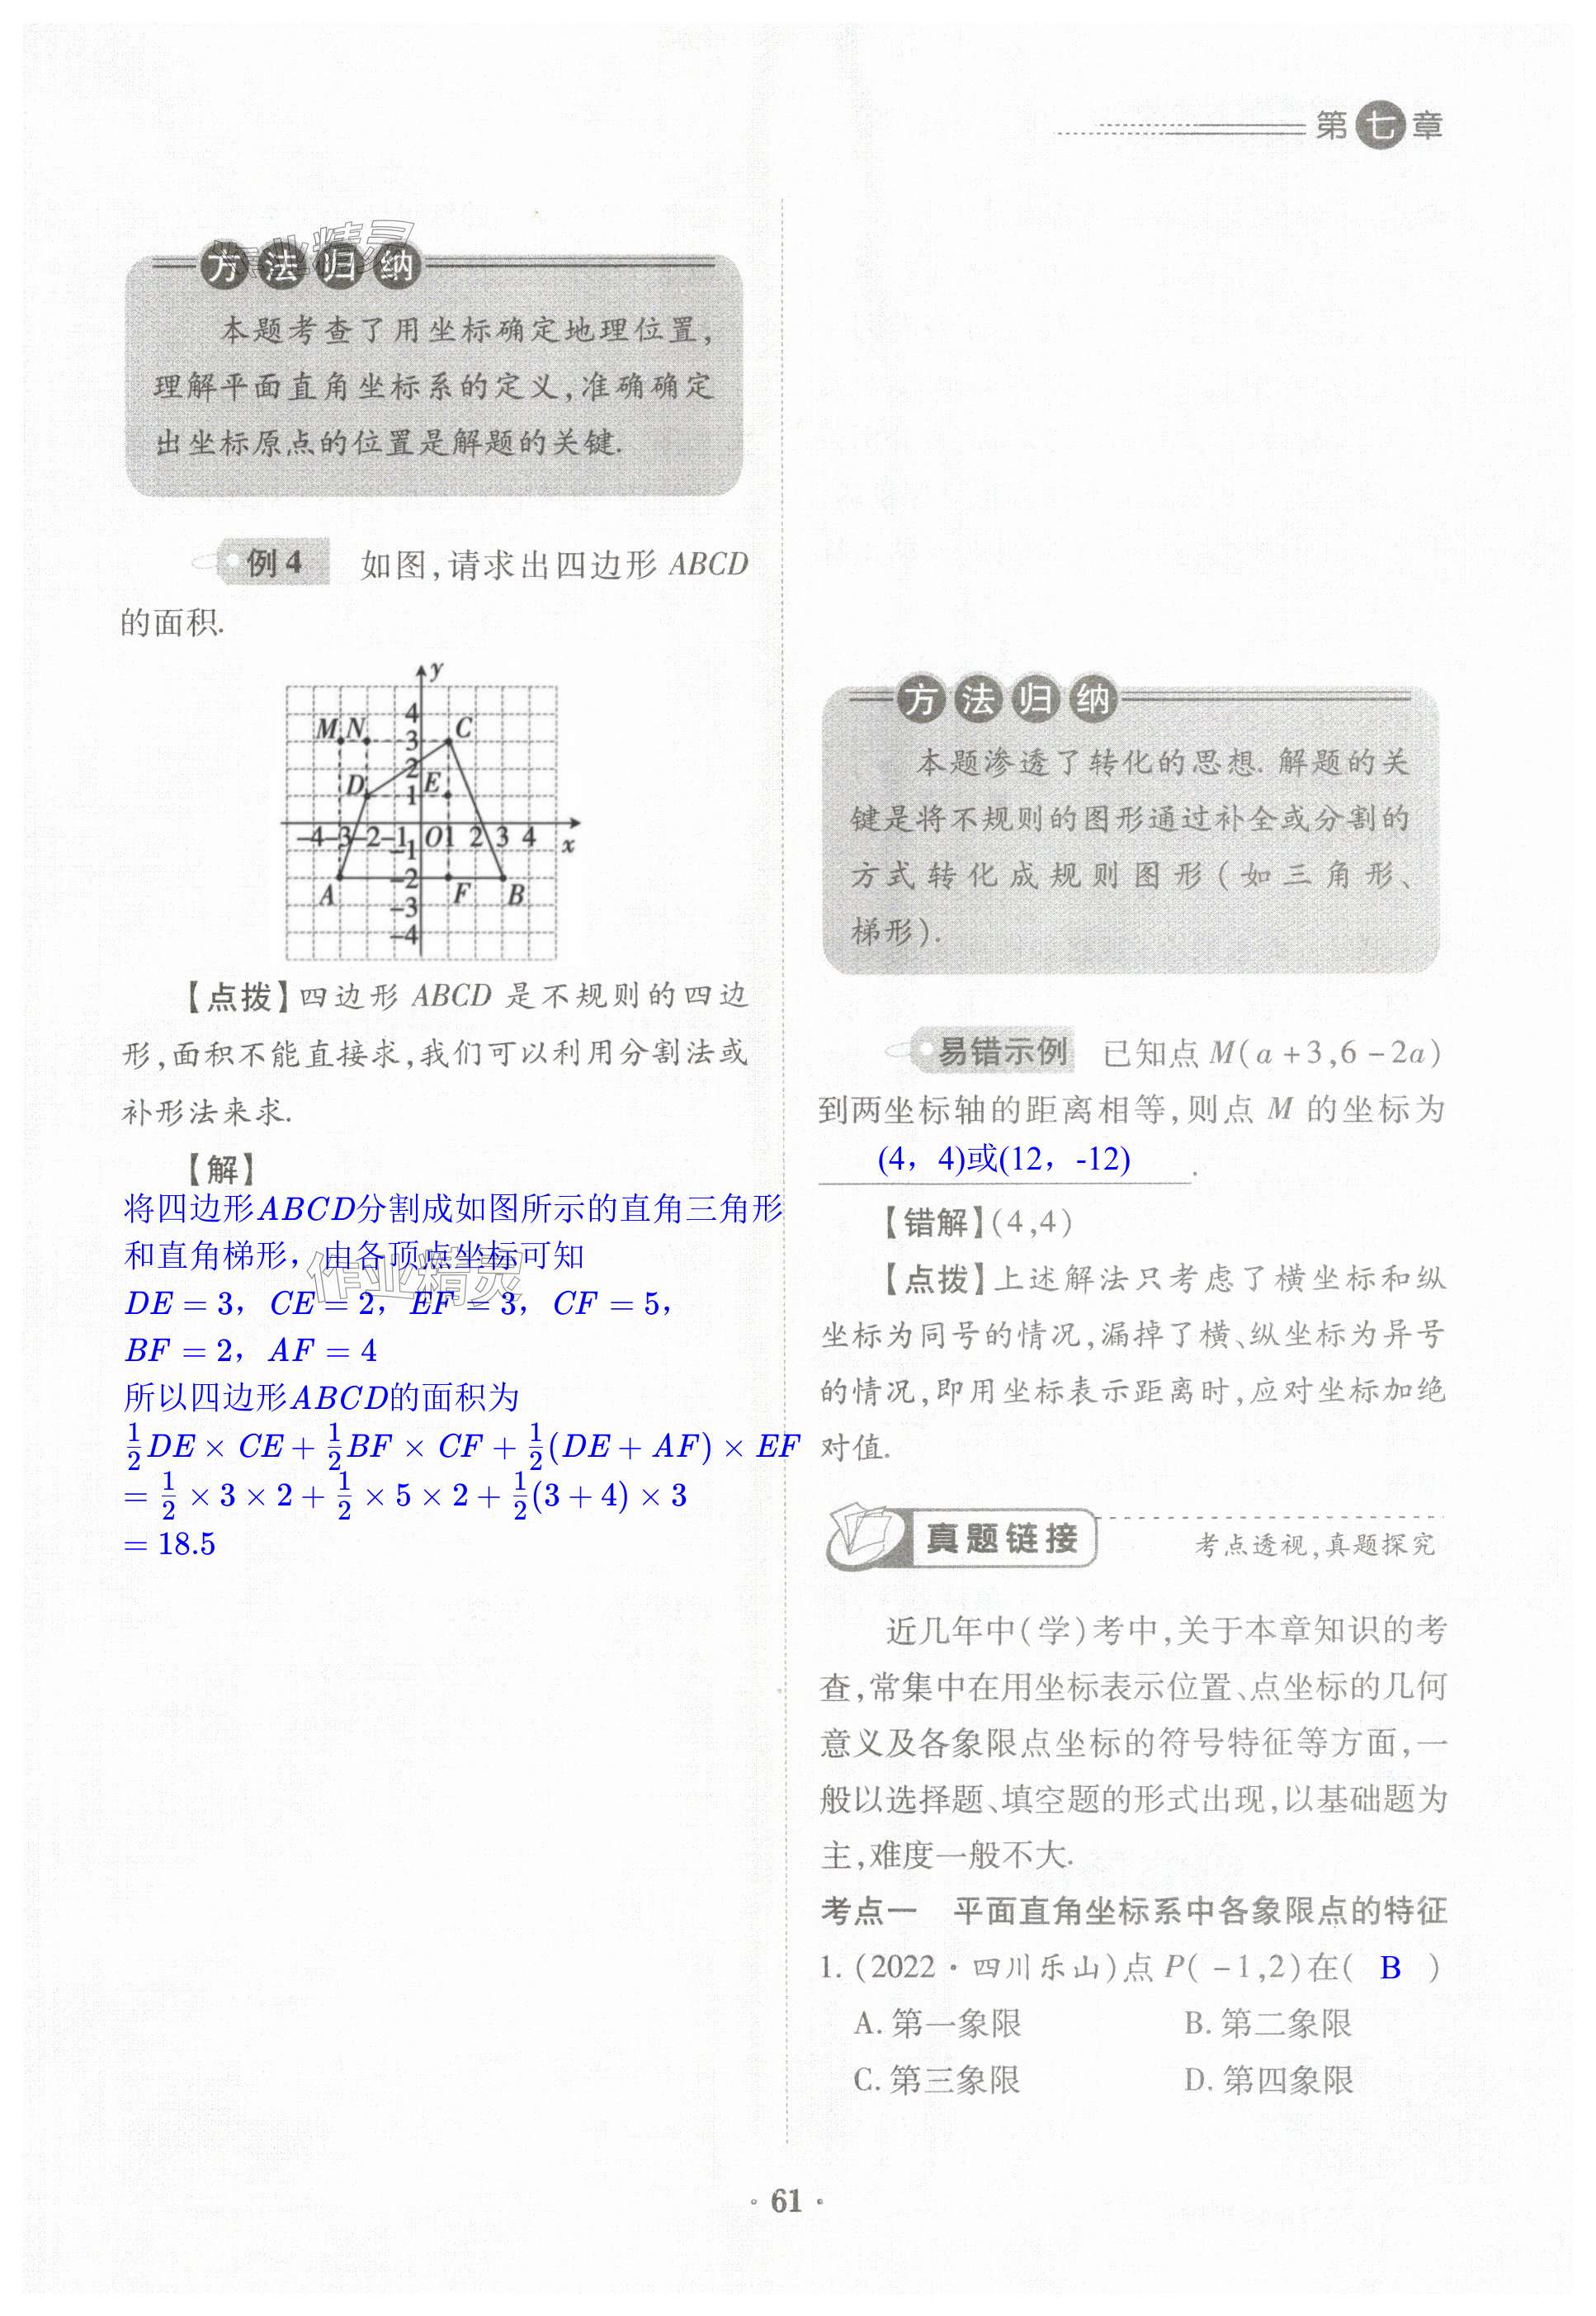 第七章
方法归纳
本题考查了用坐标确定地理位置,
理解平面直角坐标系的定义,准确确定
出坐标原点的位置是解题的关键.
例4 如图,请求出四边形 ABCD
的面积.
y
4
M N 3 C
2
D 1 E
-4 -3 -2 -1 O 1 2 3 4 x
-1
-2
A F B
-3
-4
【点拨】四边形 ABCD 是不规则的四边
形,面积不能直接求,我们可以利用分割法或
补形法来求.
【解】
将四边形ABCD分割成如图所示的直角三角形
和直角梯形，由各顶点坐标可知
DE = 3，CE = 2，EF = 3，CF = 5，
BF = 2，AF = 4
所以四边形ABCD的面积为
1/2 DE × CE + 1/2 BF × CF + 1/2 (DE + AF) × EF
= 1/2 × 3 × 2 + 1/2 × 5 × 2 + 1/2 (3 + 4) × 3
= 18.5
作业精灵
作业精灵
方法归纳
本题渗透了转化的思想. 解题的关
键是将不规则的图形通过补全或分割的
方式转化成规则图形(如三角形、
梯形).
易错示例 已知点 M(a+3,6-2a)
到两坐标轴的距离相等,则点 M 的坐标为
(4，4)或(12，-12) .
【错解】(4,4)
【点拨】上述解法只考虑了横坐标和纵
坐标为同号的情况,漏掉了横、纵坐标为异号
的情况,即用坐标表示距离时,应对坐标加绝
对值.
真题链接 考点透视,真题探究
近几年中(学)考中,关于本章知识的考
查,常集中在用坐标表示位置、点坐标的几何
意义及各象限点坐标的符号特征等方面,一
般以选择题、填空题的形式出现,以基础题为
主,难度一般不大.
考点一 平面直角坐标系中各象限点的特征
1. (2022·四川乐山)点 P(-1,2)在( B )
A. 第一象限 B. 第二象限
C. 第三象限 D. 第四象限
· 61 ·